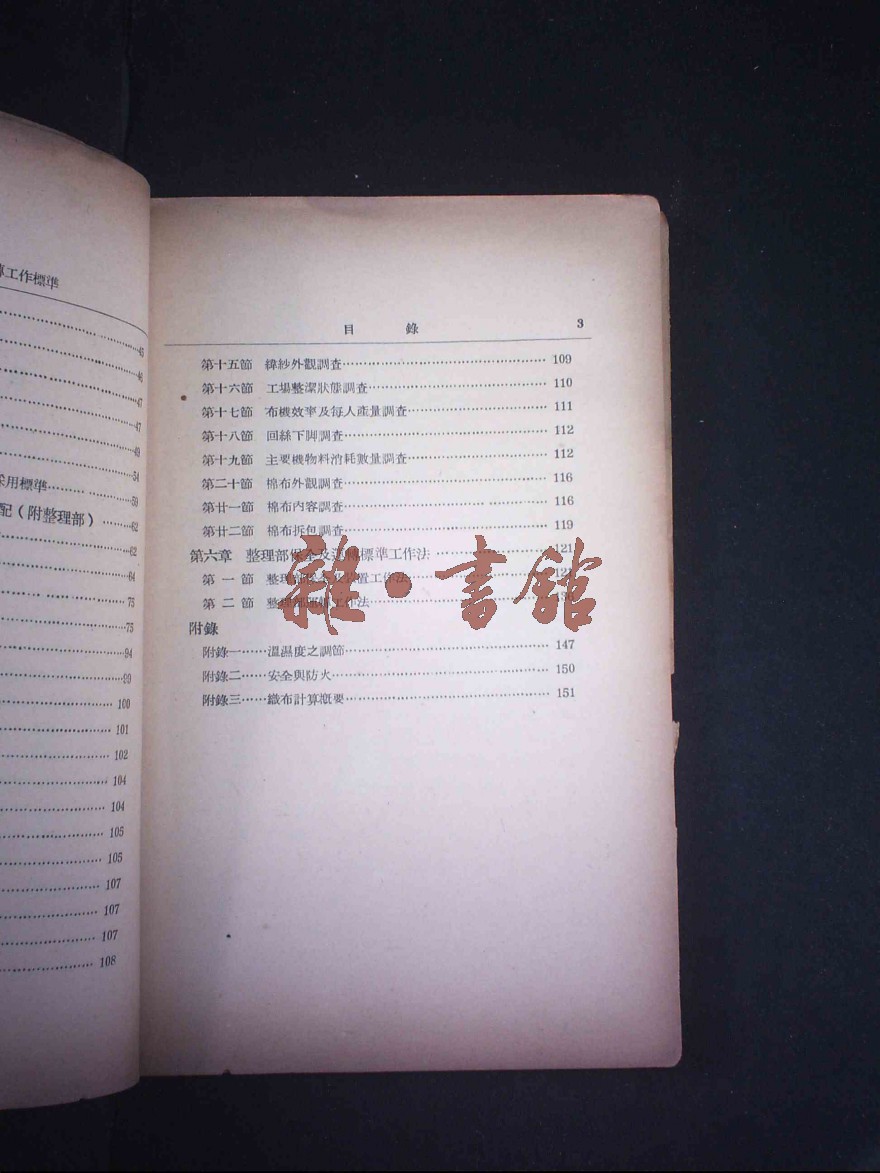 工作標準
45
46
47
47
49
54
采用標準 59
配(附整理部) 62
62
64
75
75
94
100
101
102
104
104
105
105
107
107
107
108
目 錄 3
第十五節 緯紗外觀調查 109
第十六節 工場整潔狀態調查 110
第十七節 布機效率及每人產量調查 111
第十八節 回絲下脚調查 112
第十九節 主要機物料消耗數量調查 112
第二十節 棉布外觀調查 116
第廿一節 棉布內容調查 116
第廿二節 棉布拆包調查 119
第六章 整理部保全及運轉標準工作法 121
第一節 整理部保全及 置工作法
第二節 整理部運轉工作法
附錄
附錄一……溫濕度之調節 147
附錄二……安全與防火 150
附錄三……織布計算概要 151
雜·書館